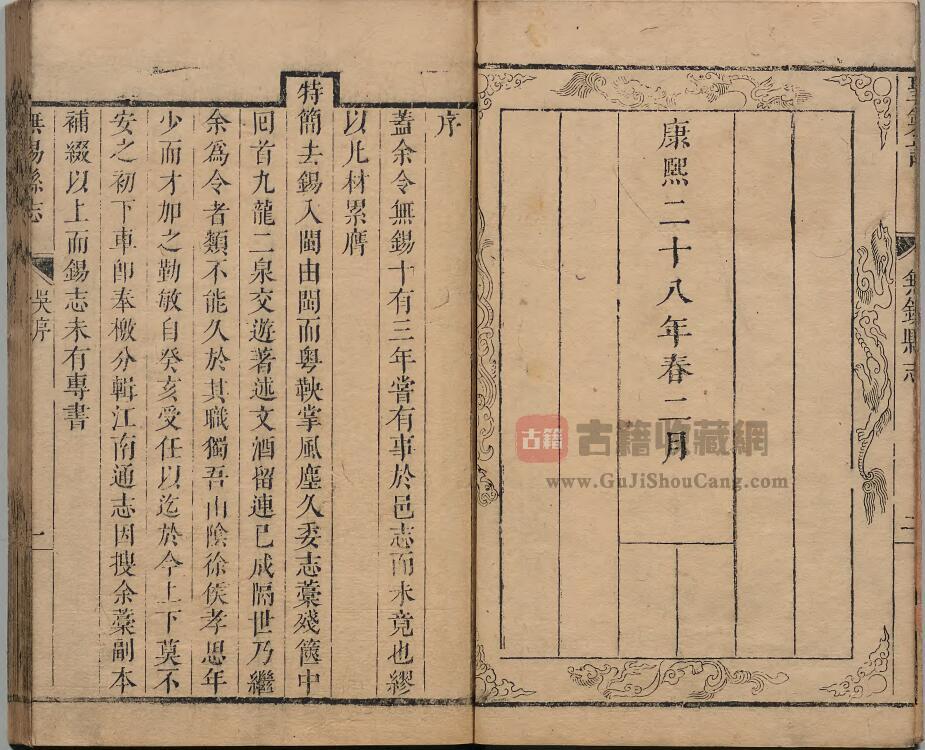 康熙二十八年春二月
無錫縣志
二
序
蓋余令無錫十有三年嘗有事於邑志而未竟也繆
以凡材累膺
特
簡去錫入閩由閩而粵鞅掌風塵久委志藁殘篋中
回首九龍二泉交遊著述文酒留連已成隔世乃繼
余爲令者類不能久於其職獨吾山陰徐侯孝思年
少而才加之勤敏自癸亥受任以迄於今上下莫不
安之初下車卽奉檄分輯江南通志因搜余藁副本
補綴以上而錫志未有專書
無錫縣志
吳序
一
古籍
古籍收藏網
www.GuJiShouCang.com